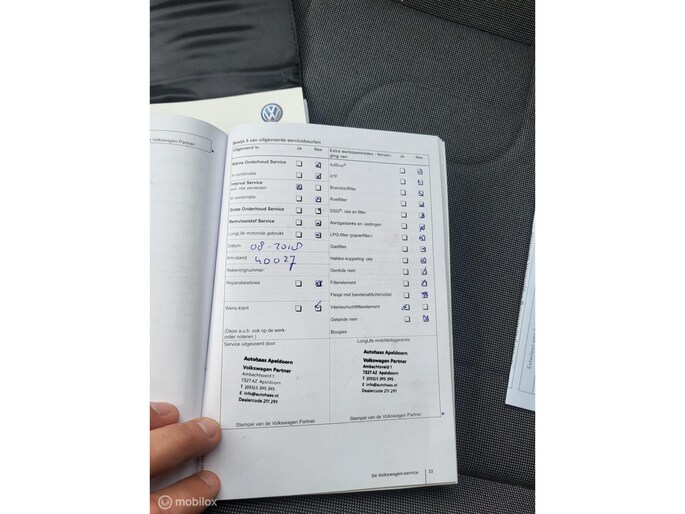 de Volkswagen Partner
Bewijs 8 van uitgevoerde servicebeurten
Uitgevoerd is: Ja Nee
Kleine Onderhoud Service
In combinatie
Interval Service
incl. olie verversen
In combinatie
Grote Onderhoud Service
Remvloeistof Service
LongLife motorolie gebruikt
Datum 08-2018
Km-stand 40027
Rekeningnummer
Reparatieadvies
Wens klant
(Deze a.u.b. ook op de werk-
order noteren.)
Service uitgevoerd door
Autohaas Apeldoorn
Volkswagen Partner
Ambachtsveld 1
7327 AZ Apeldoorn
T (055) 5 395 395
E info@autohaas.nl
Dealercode 211 291
Stempel van de Volkswagen Partner
Extra werkzaamheden - Vervan-
ging van: Ja Nee
AdBlue®
ATF
Brandstoffilter
Roetfilter
DSG®: olie en filter
Aardgastanks en -leidingen
LPG-filter (papierfilter)
Gasfilter
Haldex-koppeling: olie
Geribde riem
Filterelement
Flesje met bandenafdichtmiddel
Interieurluchtfilterelement
Getande riem
Bougies
LongLife mobiliteitsgarantie
Autohaas Apeldoorn
Volkswagen Partner
Ambachtsveld 1
7327 AZ Apeldoorn
T (055) 5 395 395
E info@autohaas.nl
Dealercode 211 291
Stempel van de Volkswagen Partner
De Volkswagen-service 33
mobilox